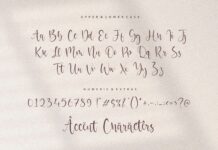 UPPER & LOWER CASE
Aa Bb Cc Dd Ee Ff Gg
Hh Ii Jj Kk Ll Mm Nn Oo
Pp Qq Rr Ss Tt
Uu Vv Ww Xx Yy Zz
NUMERIC & EXTRAS
0123456789
Accent Characters